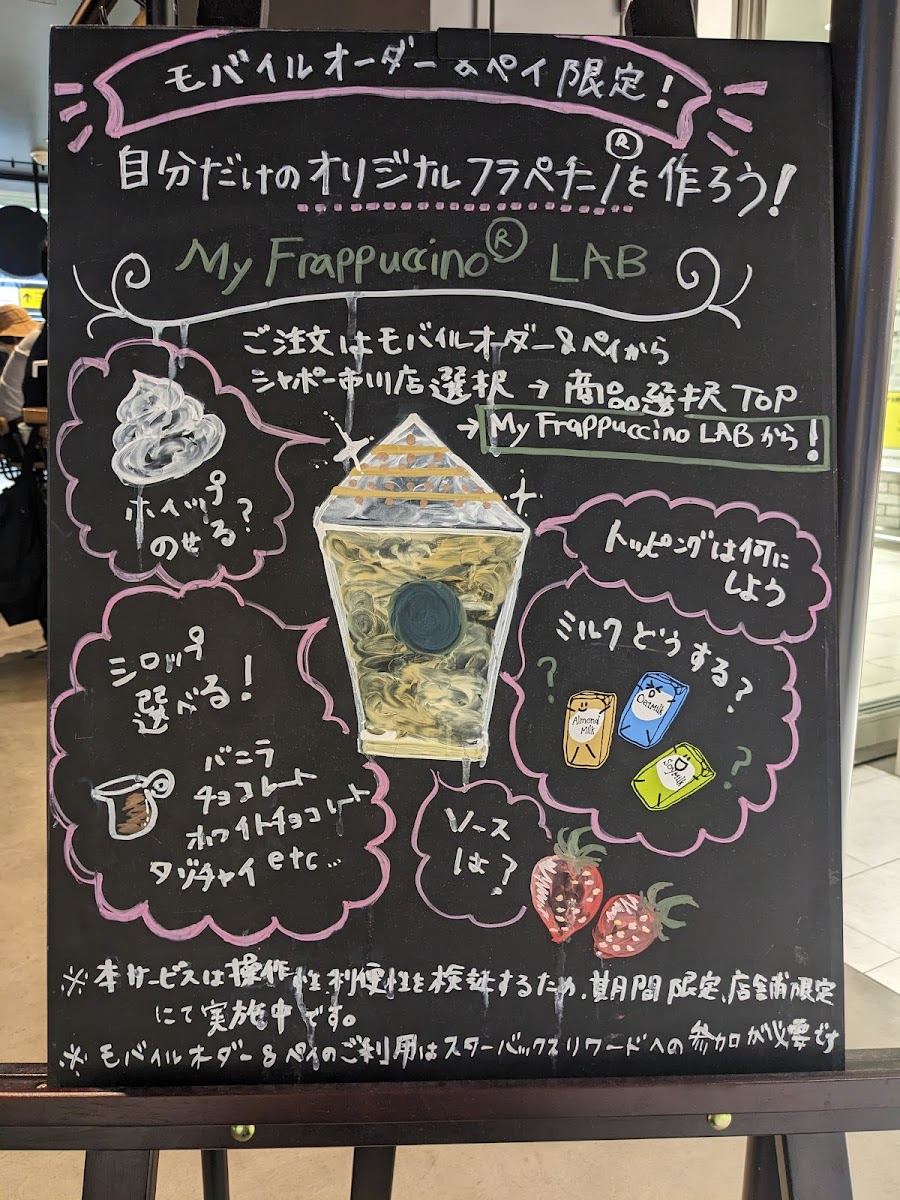 モバイルオーダー&ペイ限定!
自分だけのオリジナルフラペチーノ®を作ろう!
My Frappuccino® LAB
ご注文はモバイルオーダー&ペイから
シャポー市川店選択→商品選択TOP
→My Frappuccino LABから!
ホイップ
のせる?
トッピングは何に
しよう
ミルクどうする?
?
Almond
Milk
OatMilk
Soy Milk
?
シロップ
選べる!
バニラ
チョコレート
ホワイトチョコレート
タゾチャイetc…
ソース
は?
※本サービスは操作性利便性を検証するため、期間限定、店舗限定
にて実施中です。
※モバイルオーダー&ペイのご利用はスターバックスリワードへの参加が必要です